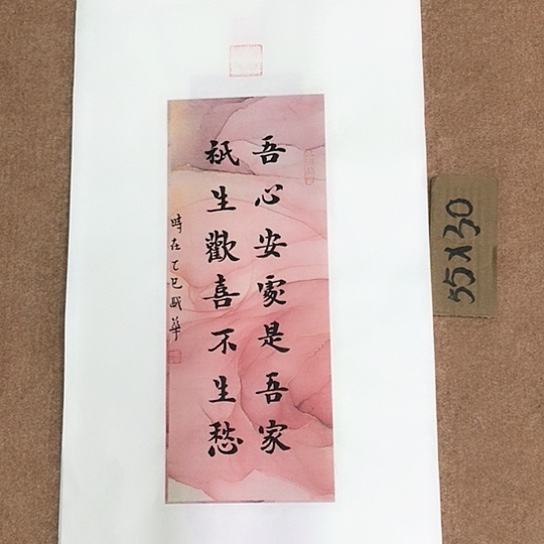 吾心安處是吾家
祇生歡喜不生愁
時在乙巳
55X30